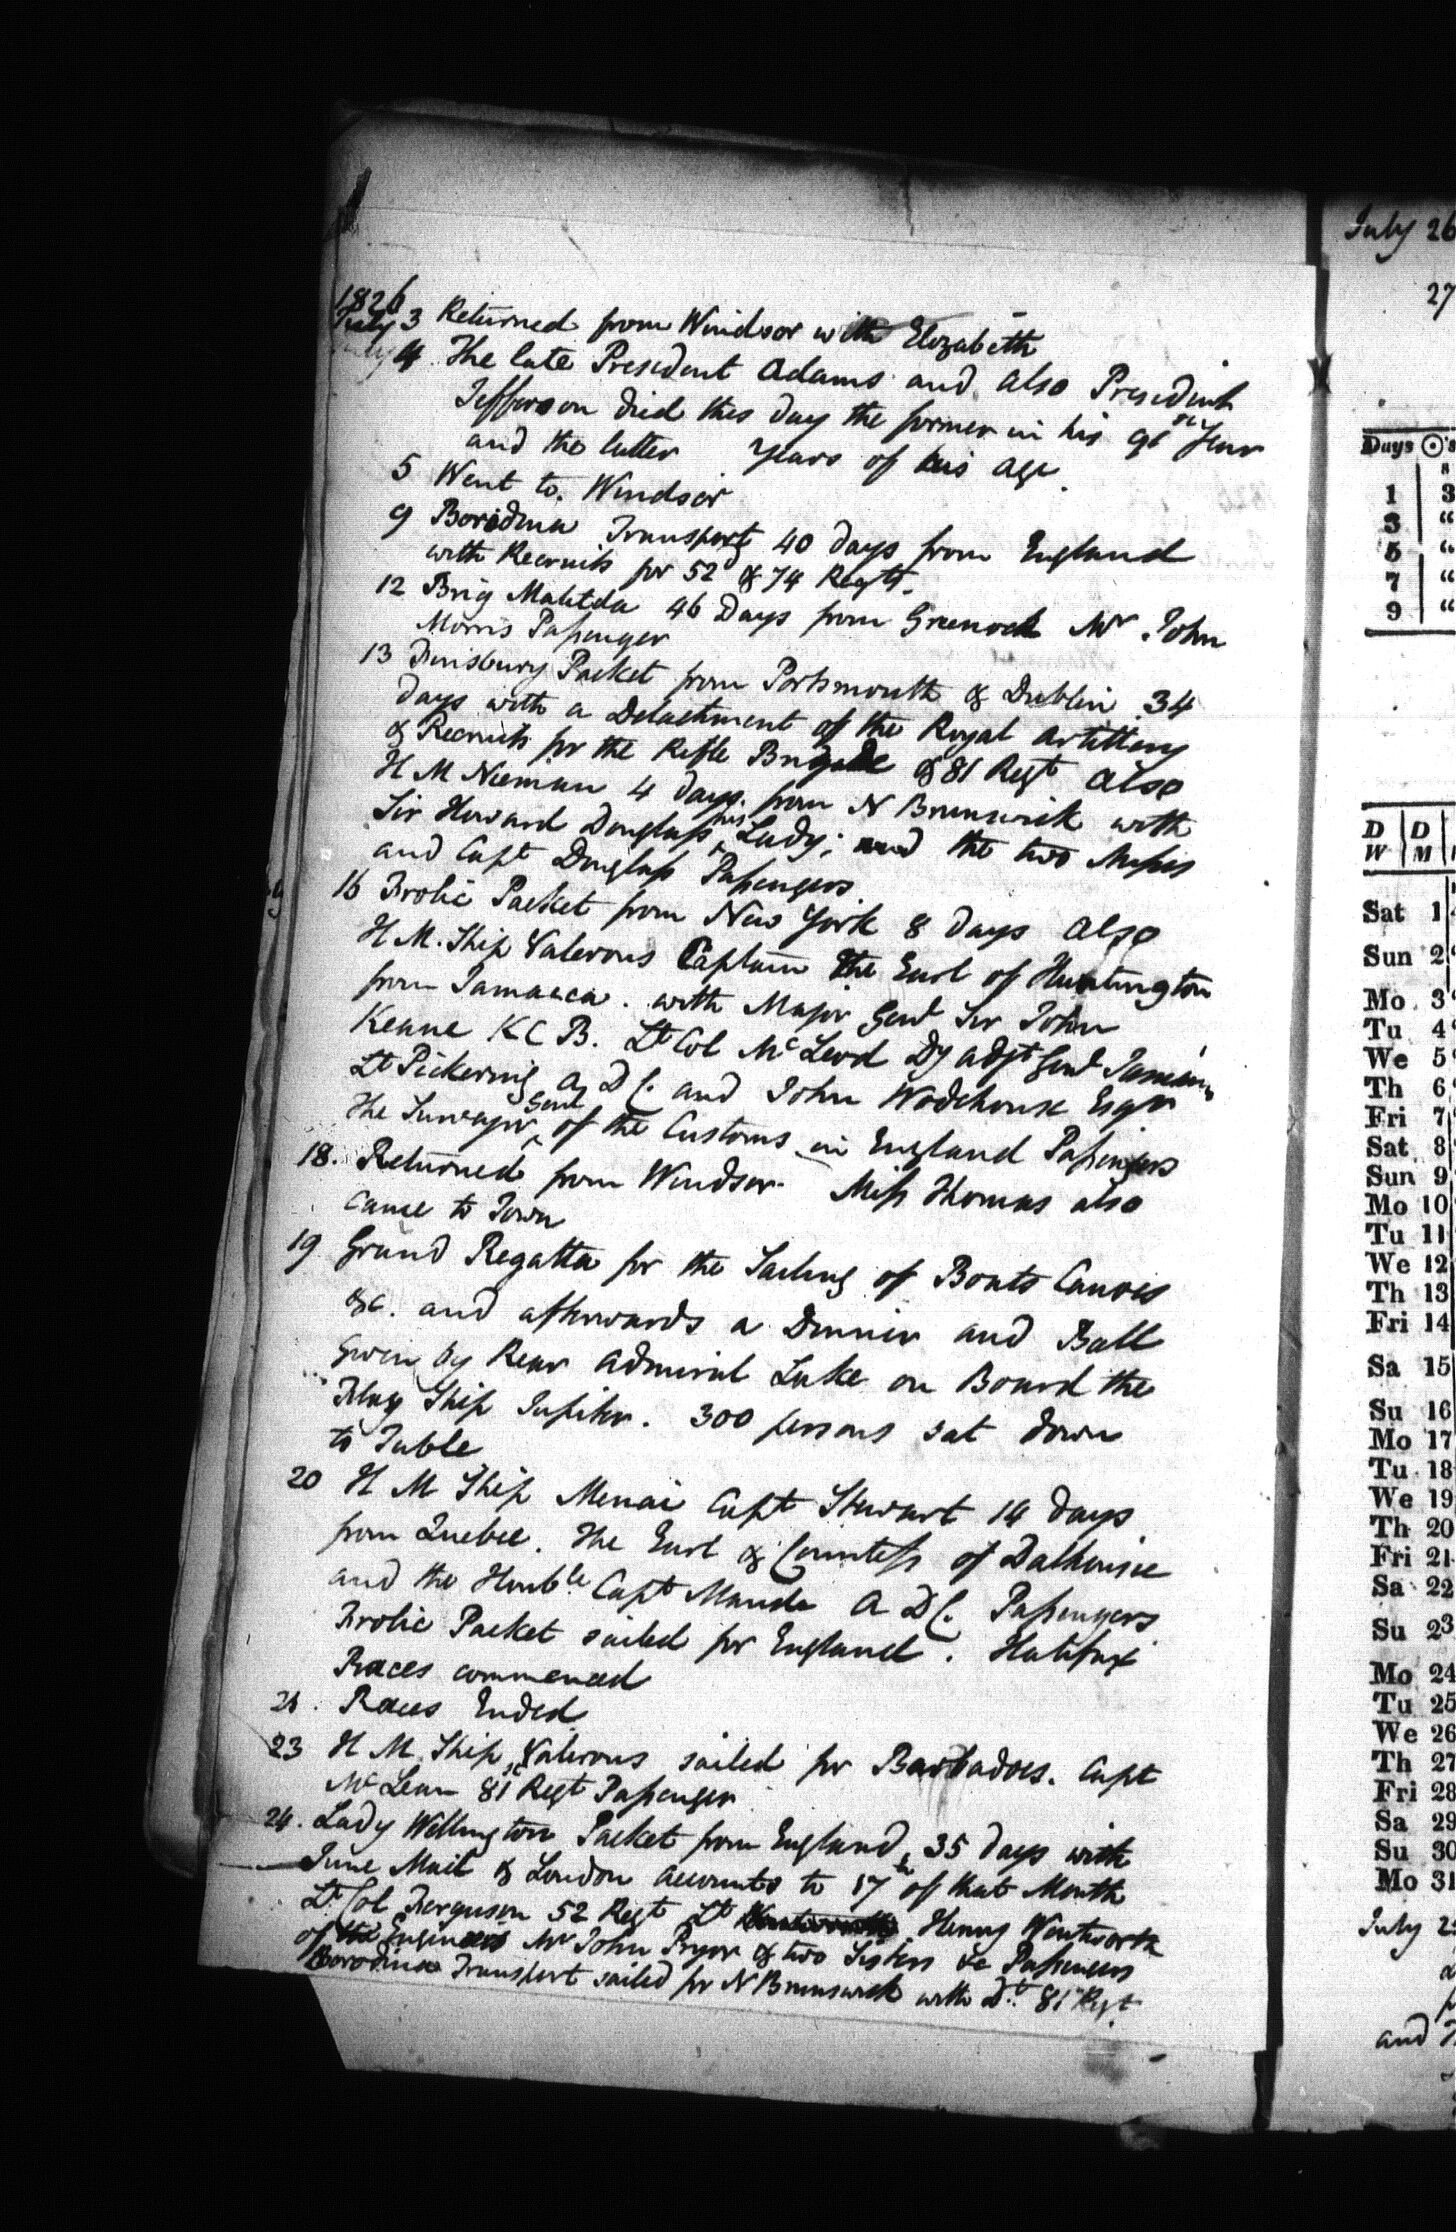 1826
July 3 Returned from Windsor with Elizabeth
July 4 The late President Adams and also President
Jefferson died this day the former in his 96th Year
and the latter Years of his age.
5 Went to Windsor
9 Borodina Transport 40 days from England
with Recruits for 52d & 74 Regts.
12 Brig Matilda 46 Days from Greenock Mr John
Morris Passenger
13 Finsbury Packet from Portsmouth & Dublin 34
days with a Detachment of the Royal Artillery
& Recruits for the Rifle Brigade & 81 Regt also
H M Nieman 4 days from N Brunswick with
Sir Howard Douglass his Lady; and the two Misses
and Capt Douglass Passengers
16 Frolic Packet from New York 8 days also
H M. Ship Valerous Captain the Earl of Huntington
from Jamaica. with Major Genl Sir John
Keane K C B. Lt Col McLeod Dy Adjt Genl Jamaica
Lt Pickering A D C. and John Wodehouse Esqr
the Surveyor Genl of the Customs in England Passengers
18. Returned from Windsor. Miss Thomas also
came to Town
19 Grand Regatta for the Sailing of Boats Canoes
&c. and afterwards a Dinner and Ball
given by Rear Admiral Lake on Board the
Flag Ship Jupiter. 300 persons sat down
to Table
20 H M Ship Menai Capt Stewart 14 days
from Quebec. The Earl & Countess of Dalhousie
and the Honble Capt Maude A D C. Passengers
Frolic Packet sailed for England. Halifax
Races commenced
21. Races Ended
23 H M. Ship Valerous sailed for Barbadoes. Capt
McLean 81st Regt Passenger
24. Lady Wellington Packet from England, 35 days with
June Mail & London accounts to 17th of that Month
Lt. Col Ferguson 52 Regt Lt Henry Wentworth
of the Engineers Mr John Pryor & two Sisters &c Passengers
Borodina Transport sailed for N Brunswick with Dt. 81 Regt
July 26
27
Days ☉'s
1 3
3 "
5 "
7 "
9 "
D D
W M
Sat 1
Sun 2
Mo 3
Tu 4
We 5
Th 6
Fri 7
Sat 8
Sun 9
Mo 10
Tu 11
We 12
Th 13
Fri 14
Sa 15
Su 16
Mo 17
Tu 18
We 19
Th 20
Fri 21
Sa 22
Su 23
Mo 24
Tu 25
We 26
Th 27
Fri 28
Sa 29
Su 30
Mo 31
July 2
and